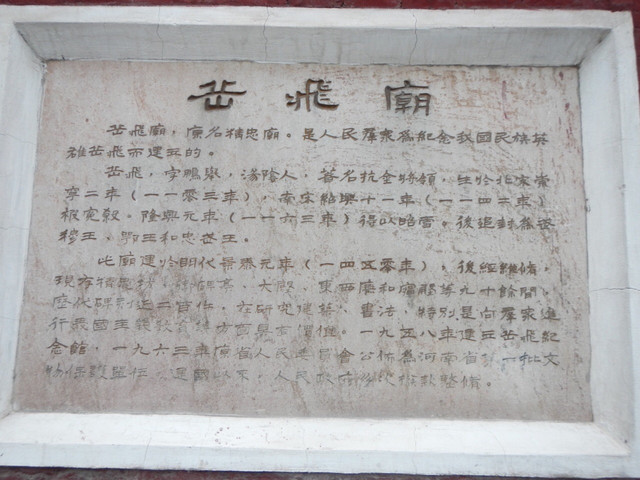 岳飛廟
岳飛廟，原名精忠廟。是人民羣衆爲紀念我國民族英
雄岳飛而建立的。
岳飛，字鵬舉，湯陰人，著名抗金將領，生於北宋崇
寧二年（一一零三年），南宋紹興十一年（一一四二年）
被冤殺。隆興元年（一一六三年）得以昭雪。後追封爲武
穆王、鄂王和忠武王。
此廟建於明代景泰元年（一四五零年），後經維修，
現存精忠坊、碑亭、大殿、東西廊和廂楼等九十餘間。
歷代碑刻近二百件，在研究歷史、書法，特別是向羣衆進
行愛國主義教育方面具有價值。一九五八年建立岳飛紀
念館，一九六三年省人民委員會公佈爲河南省第一批文
物保護單位。人民政府款整修。